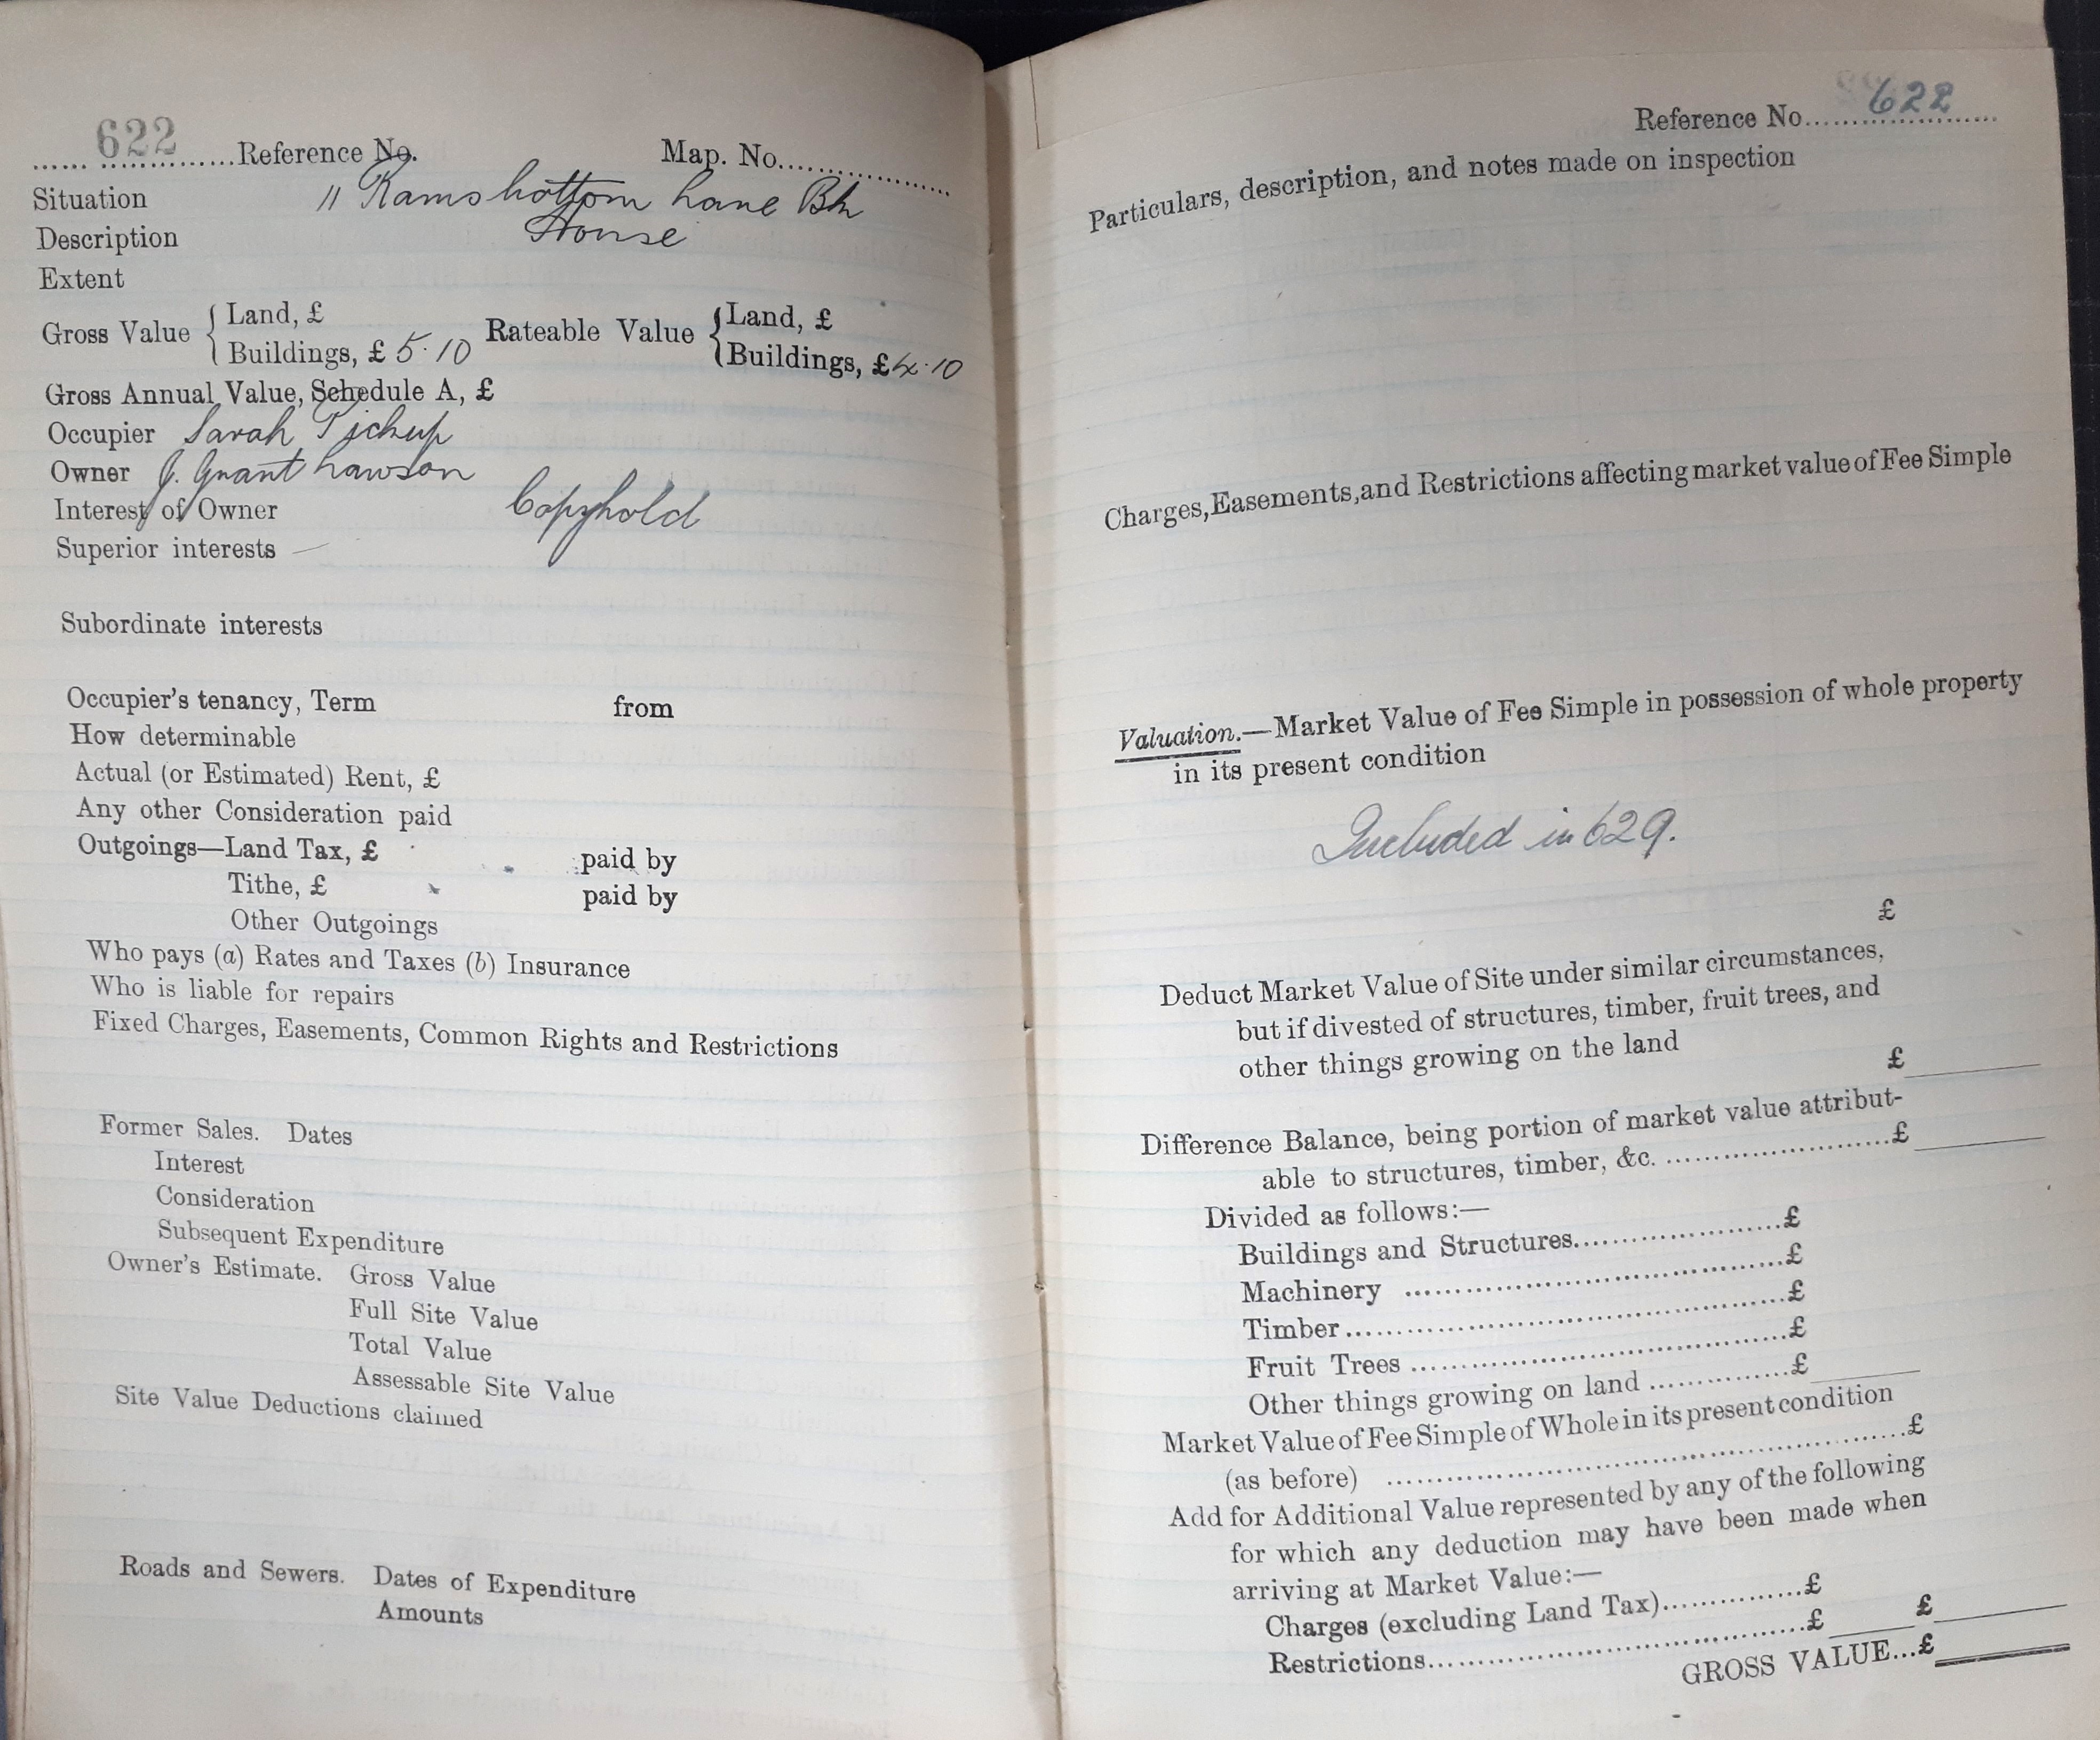 622 Reference No. Map. No.
Situation 11 Ramsbottom Lane Bh
Description House
Extent
Gross Value { Land, £ Rateable Value { Land, £
Buildings, £ 5.10 Buildings, £ 4.10
Gross Annual Value, Schedule A, £
Occupier Sarah Pickup
Owner J. Grant Lawson
Interest of Owner Copyhold
Superior interests —
Subordinate interests
Occupier's tenancy, Term from
How determinable
Actual (or Estimated) Rent, £
Any other Consideration paid
Outgoings—Land Tax, £ paid by
Tithe, £ paid by
Other Outgoings
Who pays (a) Rates and Taxes (b) Insurance
Who is liable for repairs
Fixed Charges, Easements, Common Rights and Restrictions
Former Sales. Dates
Interest
Consideration
Subsequent Expenditure
Owner's Estimate. Gross Value
Full Site Value
Total Value
Assessable Site Value
Site Value Deductions claimed
Roads and Sewers. Dates of Expenditure
Amounts
Reference No. 622
Particulars, description, and notes made on inspection
Charges, Easements, and Restrictions affecting market value of Fee Simple
Valuation.—Market Value of Fee Simple in possession of whole property
in its present condition
Included in 629.
£
Deduct Market Value of Site under similar circumstances,
but if divested of structures, timber, fruit trees, and
other things growing on the land £
Difference Balance, being portion of market value attribut-
able to structures, timber, &c. £
Divided as follows:—
Buildings and Structures £
Machinery £
Timber £
Fruit Trees £
Other things growing on land £
Market Value of Fee Simple of Whole in its present condition
(as before) £
Add for Additional Value represented by any of the following
for which any deduction may have been made when
arriving at Market Value:—
Charges (excluding Land Tax) £
Restrictions £ £
GROSS VALUE...£